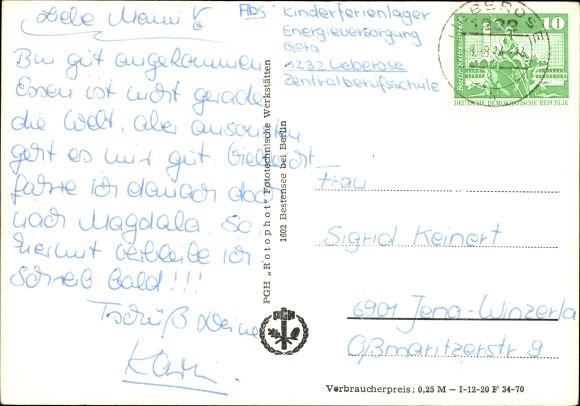 Liebe Mammi!
Bin gut angekommen.
Essen ist nicht gerade
die Welt, aber ansonsten
geht es mir gut. Vielleicht
fahre ich danach doch
nach Magdala. So
hiermit verbleibe ich
Schreib bald!!!
Tschüß Deine
Abs: Kinderferienlager
Energieversorgung
Gera
1232 Ueberose
Zentralberufsschule
PGH „Rotophot" Fototechnische Werkstätten
1602 Bestensee bei Berlin
BEROSE
1232
10
DEUTSCHE DEMOKRATISCHE REPUBLIK
Frau
Sigrid Keinert
6901 Jena-Winzerla
Oßmaritzerstr 9
Verbraucherpreis: 0,25 M – I-12-20 F 34-70